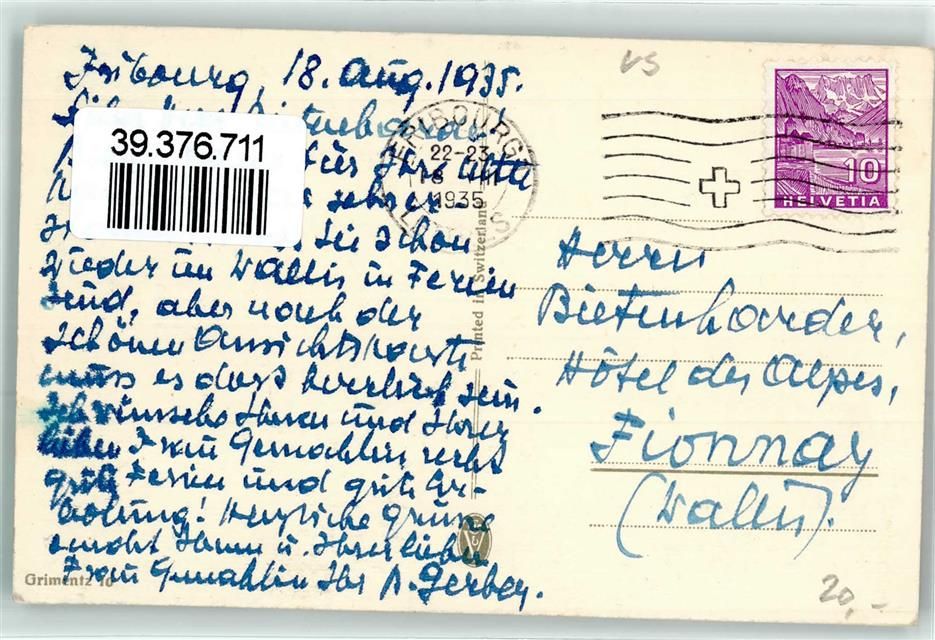 Fribourg, 18. Aug. 1935.
39.376.711
für Ihre
sehr
Sie schon
wieder im Wallis in Ferien
sind, aber nach der
schönen Ansichtskarte
muss es dort herrlich sein.
Ich wünsche Ihnen und Ihrer
lieben Frau Gemahlin recht
gute Ferien und gute Er-
holung! Herzliche Grüsse
sendet Ihnen u. Ihrer lieben
Frau Gemahlin Ihr A. Gerber.
Grimentz 10
Printed in Switzerland
FRIBOURG
22-23
1935
10
HELVETIA
VS
Herrn
Bietenharder,
Hôtel des Alpes,
Fionnay
(Wallis).
20,-